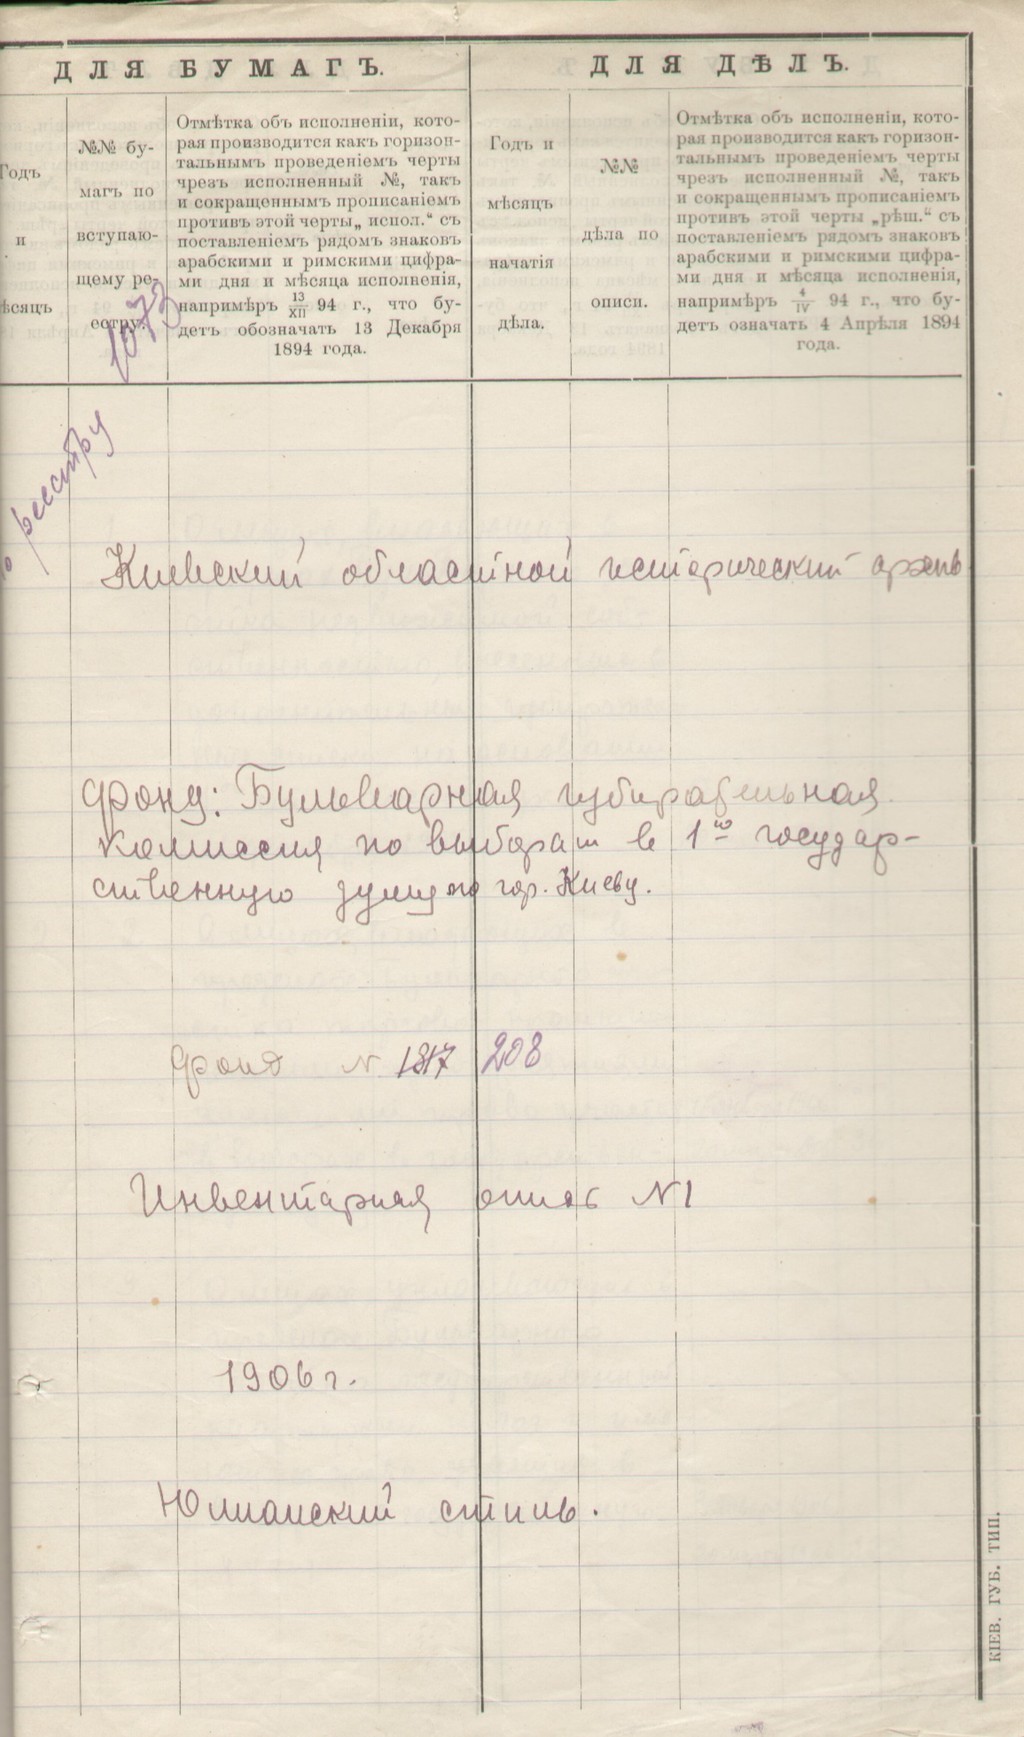 ДЛЯ БУМАГЪ.
ДЛЯ ДѢЛЪ.
Годъ
и
ѣсяцъ
№№ бу-
магъ по
вступаю-
щему ре-
естру.
Отмѣтка объ исполненіи, кото-
рая производится какъ горизон-
тальнымъ проведеніемъ черты
чрезъ исполненный №, такъ
и сокращеннымъ прописаніемъ
противъ этой черты „ испол.“ съ
поставленіемъ рядомъ знаковъ
арабскими и римскими цифра-
ми дня и мѣсяца исполненія,
напримѣръ 13/XII 94 г., что бу-
детъ обозначать 13 Декабря
1894 года.
Годъ и
мѣсяцъ
начатія
дѣла.
№№
дѣла по
описи.
Отмѣтка объ исполненіи, кото-
рая производится какъ горизон-
тальнымъ проведеніемъ черты
чрезъ исполненный №, такъ
и сокращеннымъ прописаніемъ
противъ этой черты „рѣш.“ съ
поставленіемъ рядомъ знаковъ
арабскими и римскими цифра-
ми дня и мѣсяца исполненія,
напримѣръ 4/IV 94 г., что бу-
детъ означать 4 Апрѣля 1894
года.
по реестру
1073
Киевский областной исторический архив
Фонд: Бульварная избирательная
комиссия по выборам в 1ю государ-
ственную думу по гор. Киеву.
Фонд N 1317 208
Инвентарная опись N1
1906 г.
Юлианский стиль.
КІЕВ. ГУБ. ТИП.